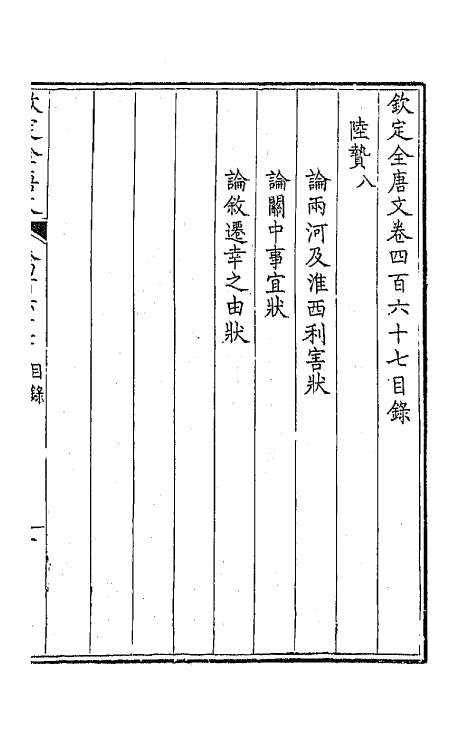 欽定全唐文卷四百六十七目錄
陸贄八
論兩河及淮西利害狀
論關中事宜狀
論敘遷幸之由狀
欽定全唐文
目錄
一